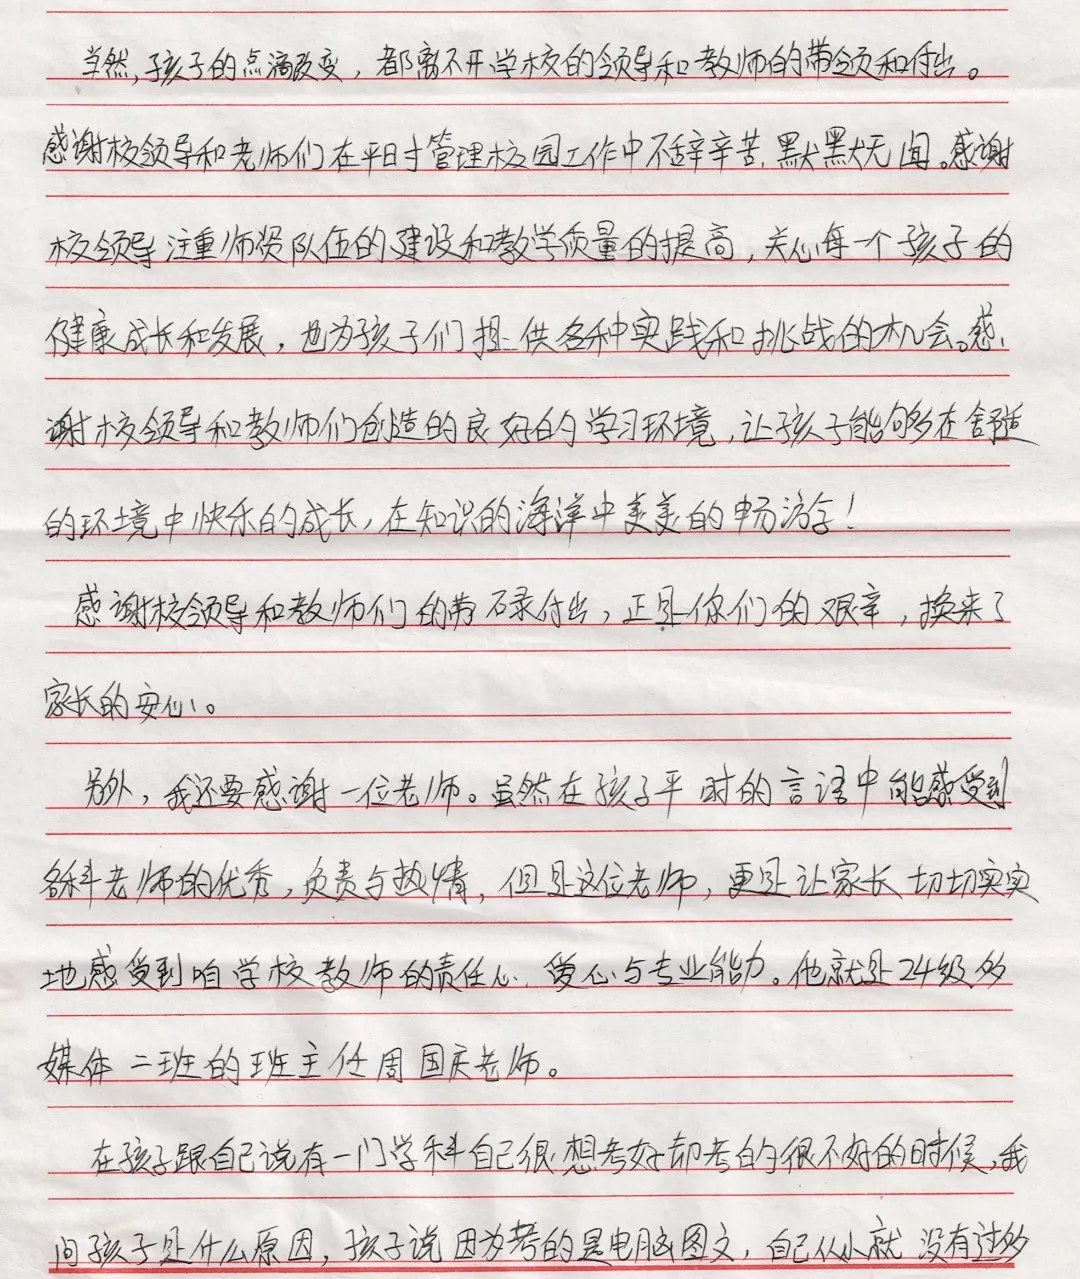 当然,孩子的点滴改变，都离不开学校的领导和教师的带领和付出。
感谢校领导和老师们在平日寸管理校园工作中不辞辛苦,默默无闻。感谢
校领导注重师资队伍的建设和教学质量的提高,关心每一个孩子的
健康成长和发展，也为孩子们提供各种实践和挑战的机会。感
谢校领导和教师们创造的良好的学习环境,让孩子能够在舒适
的环境中快乐的成长,在知识的海洋中美美的畅游!
感谢校领导和教师们的碌付出，正是你们的艰辛，换来了
家长的安心。
另外，我还要感谢一位老师。虽然在孩子平时的言语中能感受到
各科老师的优秀,负责与热情，但是这位老师，更是让家长切切实实
地感受到咱学校教师的责任心、爱心与专业能力。他就是24级多
媒体二班的班主任周国庆老师。
在孩子跟自己说有一门学科自己很想考好却考的很不好的时候,我
问孩子是什么原因，孩子说因为考的是电脑图文，自己从小就没有过多